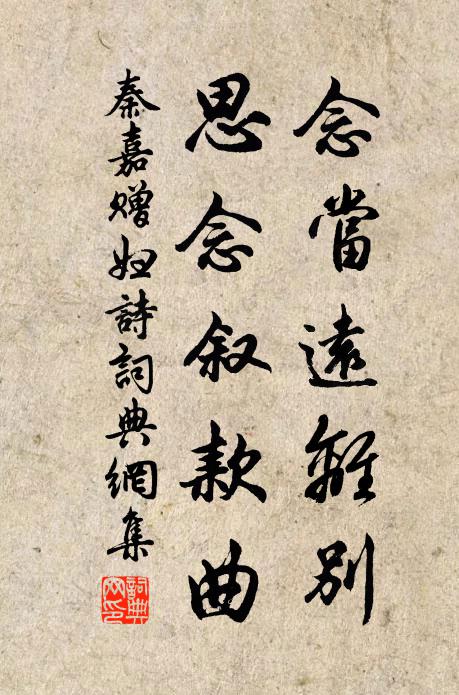 念當遠離別
思念叙款曲
秦嘉贈婦詩詞典網集
詞典网印